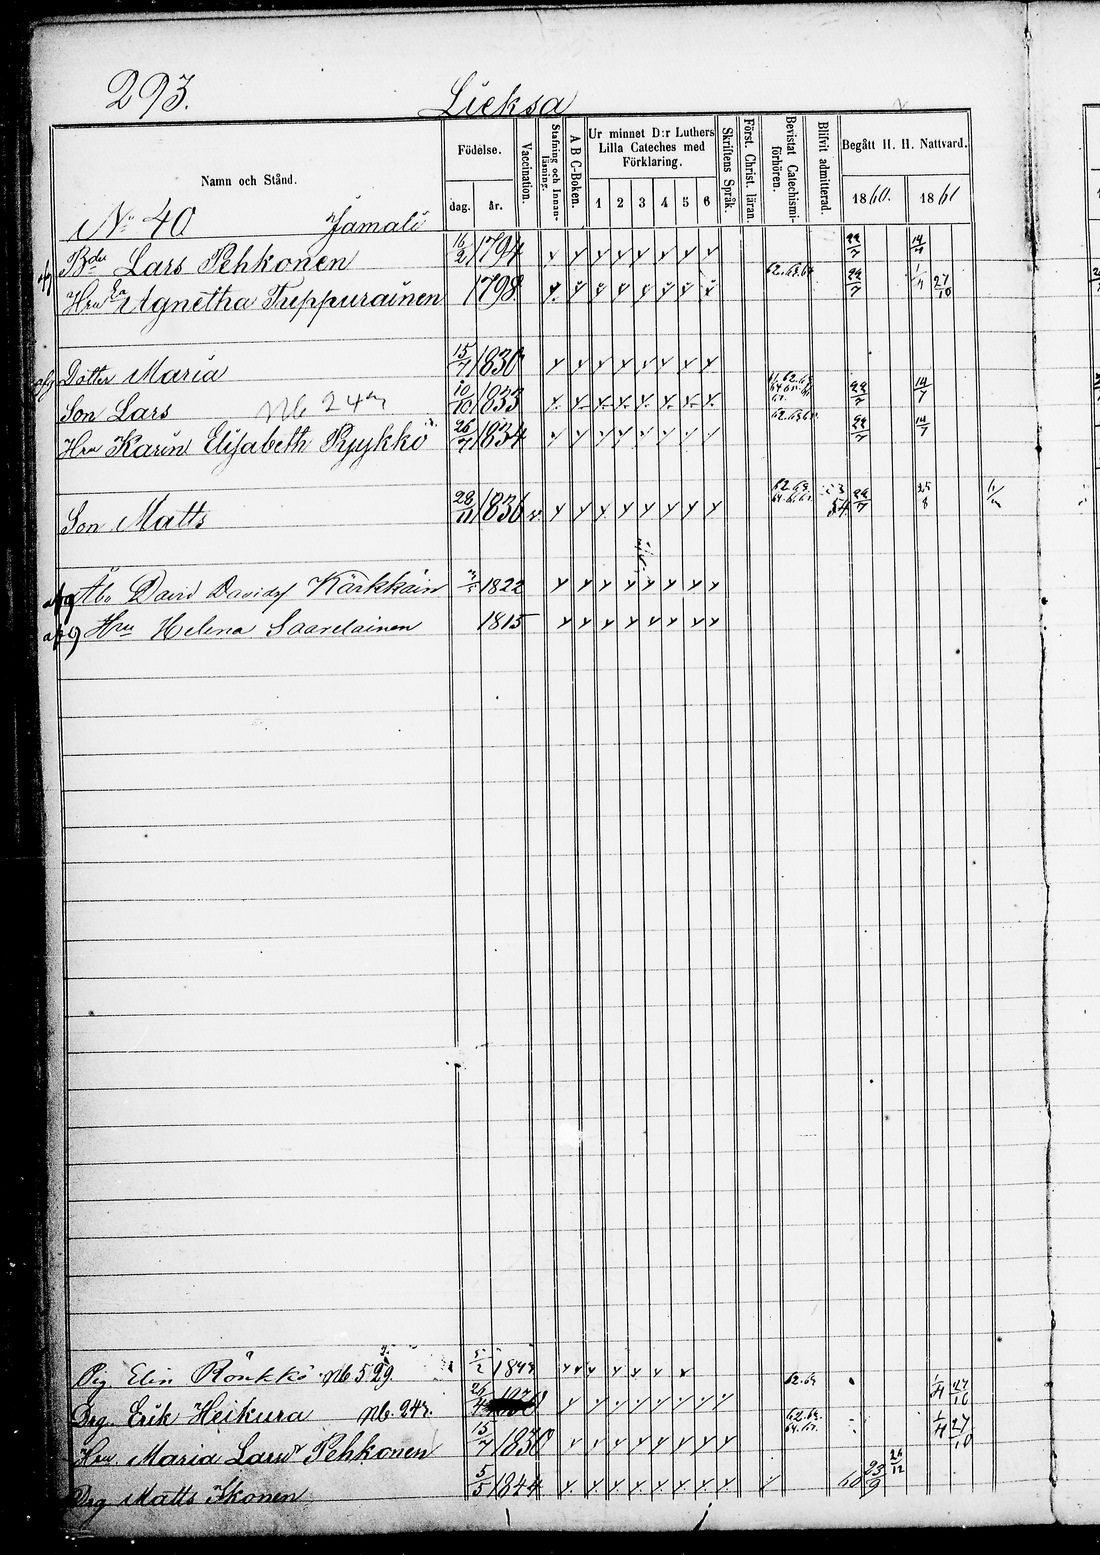 293. Lieksa
Namn och Stånd.
Födelse.
dag. år.
Vaccination.
Stafning och Innanläsning.
A B C-Boken.
Ur minnet D:r Luthers Lilla Cateches med Förklaring.
1 2 3 4 5 6
Skriftens Språk.
Först. Christ. läran.
Bevistat Catechismiförhören.
Blifvit admitterad.
Begått H. H. Nattvard.
1860. 1861
No 40 Jamali
Lars Pehkonen 16/2 1794 22/7 14/7
Hru Agnetha Tuppurainen 1798 62.63.64 22/7 27/10
Dotter Maria 15/7 1830
Son Lars No 24 10/10 1833 22/7 14/7
Hru Karin Elisabeth Ryykkö 26/7 1834 22/7 14/7
Son Matts 28/11 1836 v. 54 22/7 25/8
afg David Davidsf Kärkkäin 1822
afg Hru Helena Saarelainen 1815
Pig. Elin Rönkkö No 529. 5/2 1844
Drg. Erik Heikura No. 24 26/4 62.64 1/4 27/10
Hru Maria Larsd Pehkonen 15/7 1830 1/4 27/10
Drg Matts Ikonen 5/5 1844 60 23/9 26/12